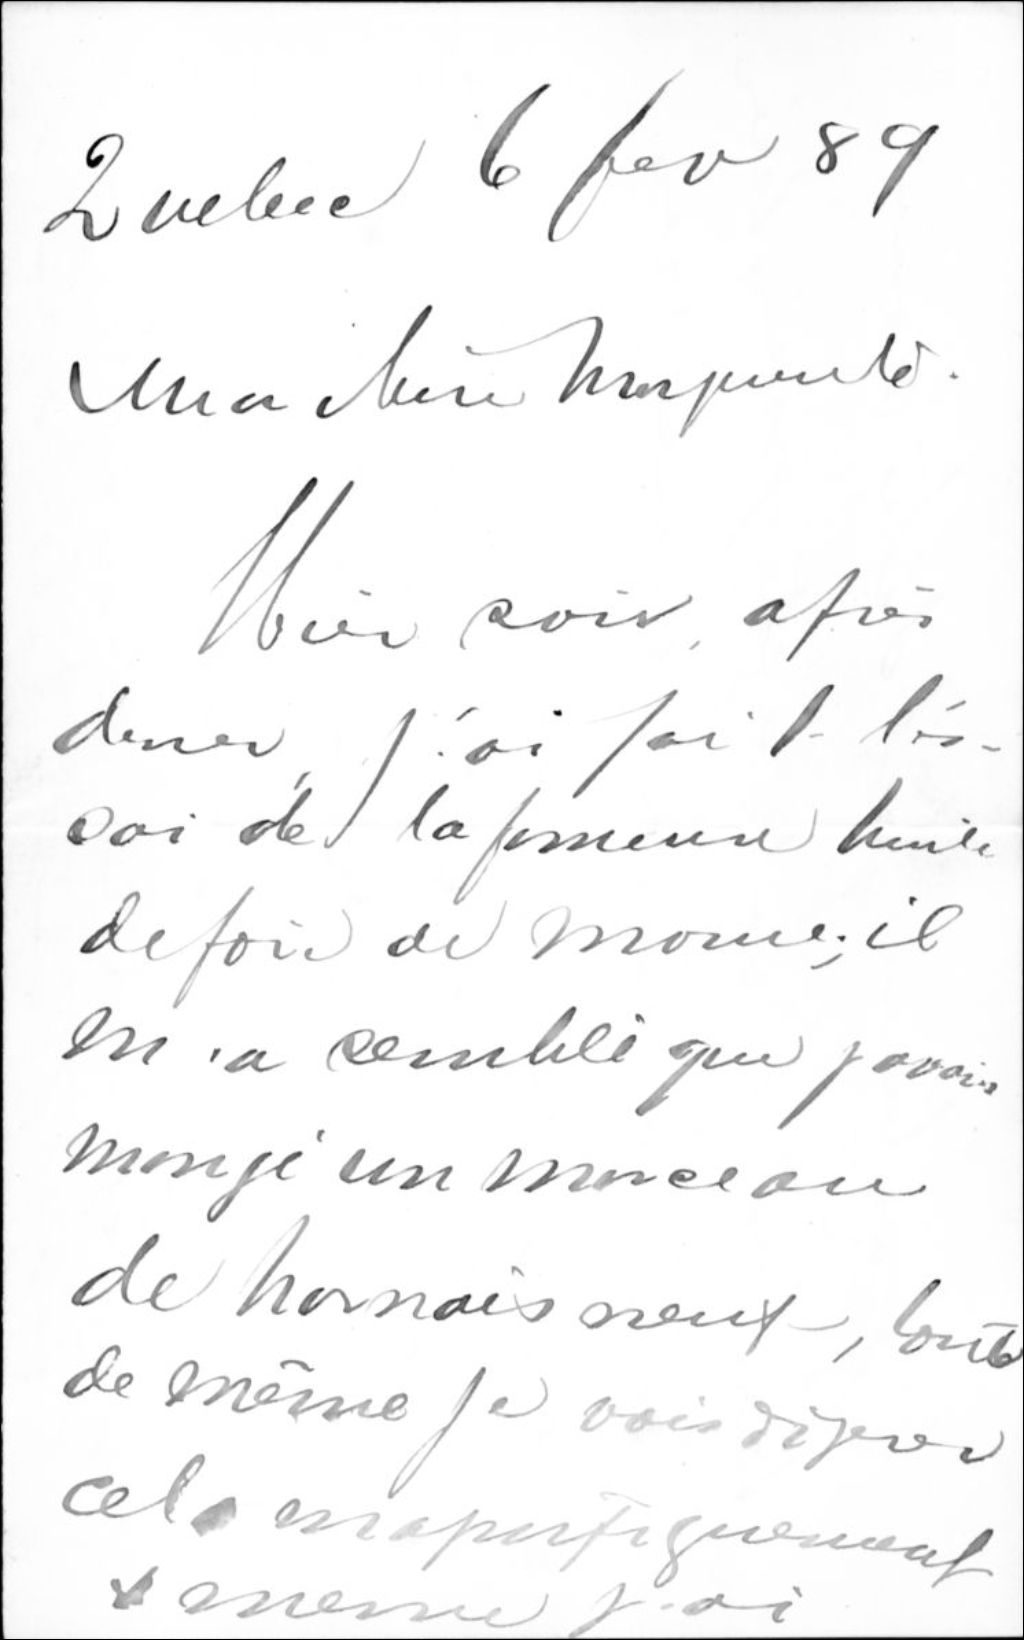 Quebec 6 fev 89
Ma chère Marguerite.
Hier soir, après
diner, j'ai fait l'és-
sai de la fameuse huile
de foie de morue; il
m'a semblé que j'avais
mangé un morceau
de harnais neuf, tout
de même je vais digérer
cela magnifiquement
même j'ai